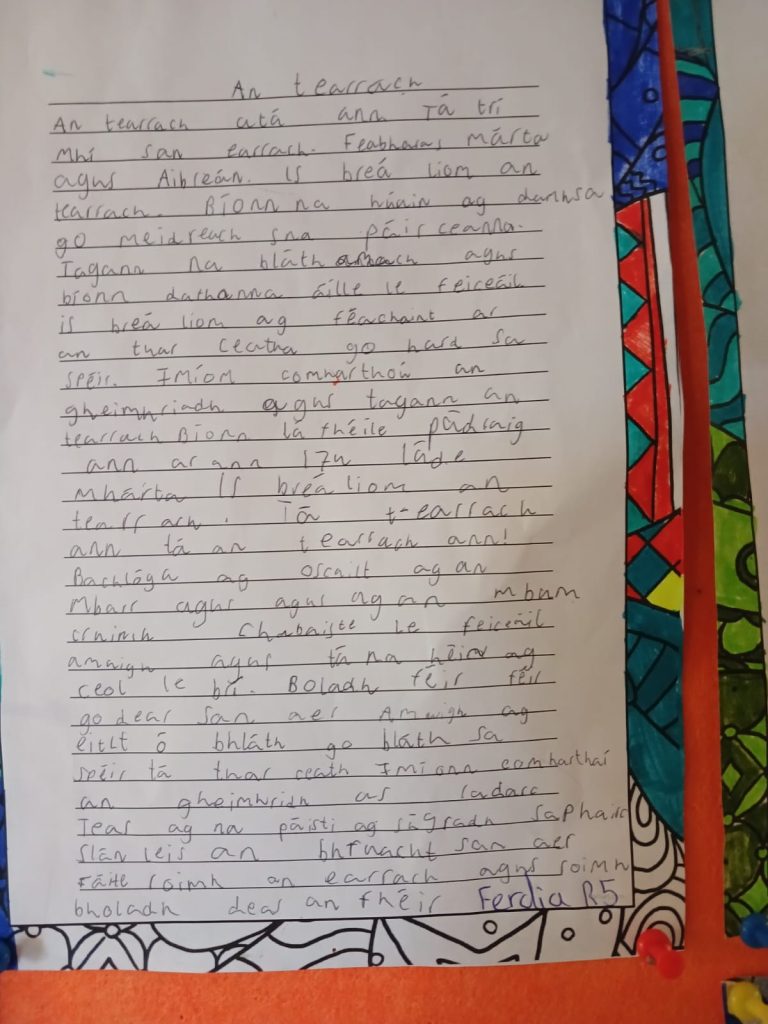 An tearrach
An tearrach atá ann Tá trí
Mhí san earrach. Feabhara Márta
agus Aibreán. Is breá liom an
tearrach. Bíonn na húain ag damhsa
go meidreach sna páirceanna.
Tagann na bláth amach agus
bíonn dathanna áille le feiceáil
is breá liom ag féachaint ar
an tuar ceatha go hard sa
spéir. Imíonn comharthaí an
gheimhriadh agus tagann an
tearrach Bíonn lá fhéile pádraig
ann ar ann 17ú lá de
Mhárta Is breá liom an
tearrach. Tá t-earrach
ann tá an tearrach ann!
Bachlóga ag oscailt ag an
Mbarr agus agus ag an mbum
Chabáiste le feiceáil
amuigh agus tá na héin ag
ceol le brí. Boladh féir féir
go deas san aer Amuigh ag
eitlt ó bhláth go bláth sa
spéir tá tuar ceath Imíonn comharthaí
an gheimhridh as radarc
Teas ag na páistí ag súgradh sa pháirc
Slán leis an bhfuacht san aer
Fáilte roimh an earrach agus roimh
bholadh deas an fhéir Ferdia R5